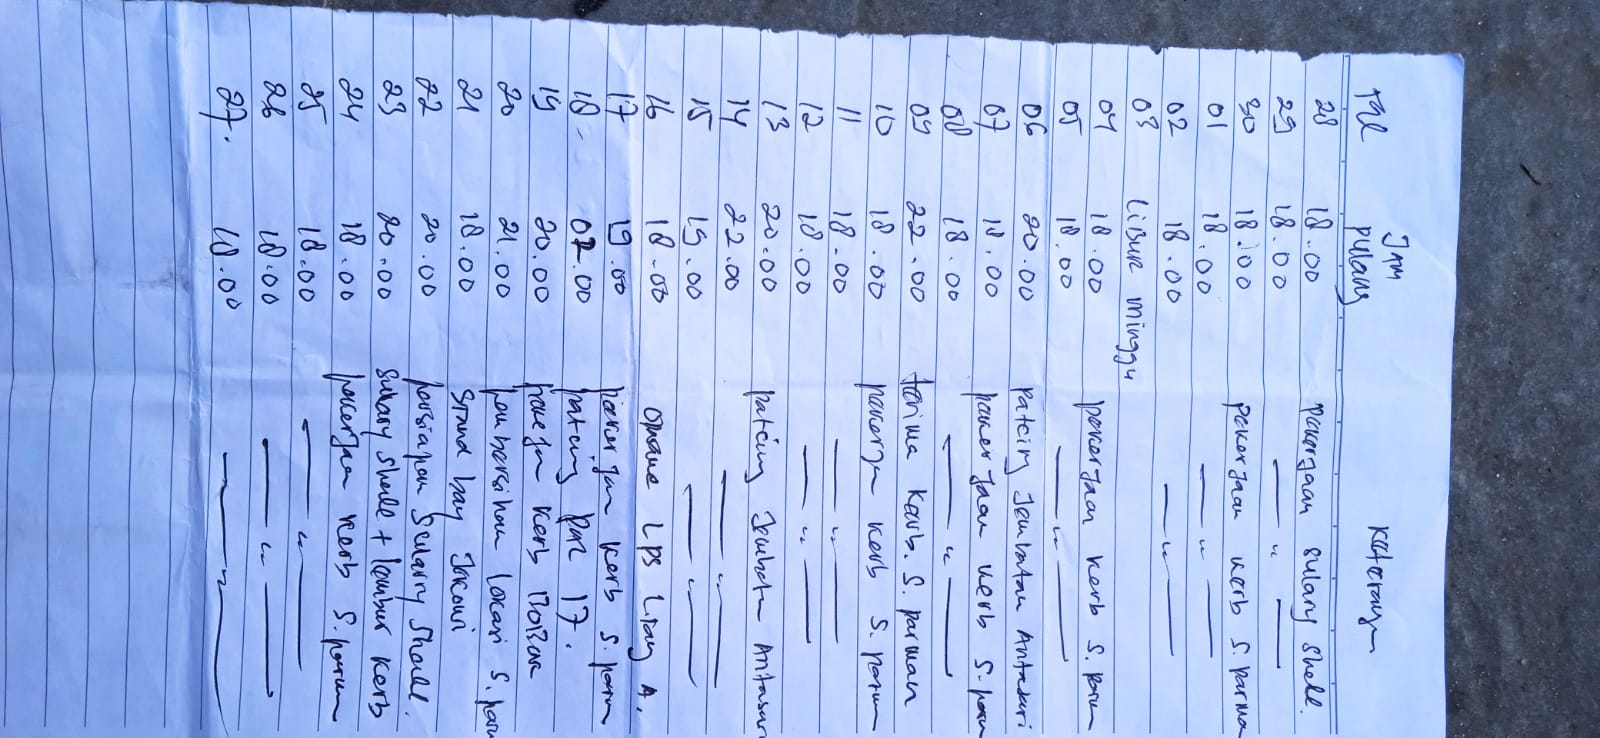 Tgl Jam pulang Keterangan
28 18.00 pekerjaan sulary Shell.
29 18.00 — " —
30 18.00 pekerjaan kerb S. Parman
01 18.00 — " —
02 18.00 — " —
03 Libur minggu
04 18.00 pekerjaan kerb S. Parm
05 18.00 — " —
06 20.00 patcing Jembatan Antasari
07 18.00 pekerjaan kerb S. parm
08 18.00 — " —
09 22.00 terima kerb. S. parman
10 18.00 pekerjan kerb S. parman
11 18.00 — " —
12 18.00 — " —
13 20.00 patcing Jembatan Antasari
14 22.00 — " —
15 15.00 — " —
16 18.00 LPS A.
17 19.00 pekerjan kerb S. parm
18 02.00 patcing 17.
19 20.00 kerb
20 21.00 pembersihan Lokasi S. parm
21 18.00 Stand bay Jokowi
22 20.00 persiapan Sularry Shell.
23 20.00 Sulary Shell + lembur kerb
24 18.00 pekerjaan kerb S. parman
25 18.00 — " —
26 18.00 — " —
27. 18.00 — " —